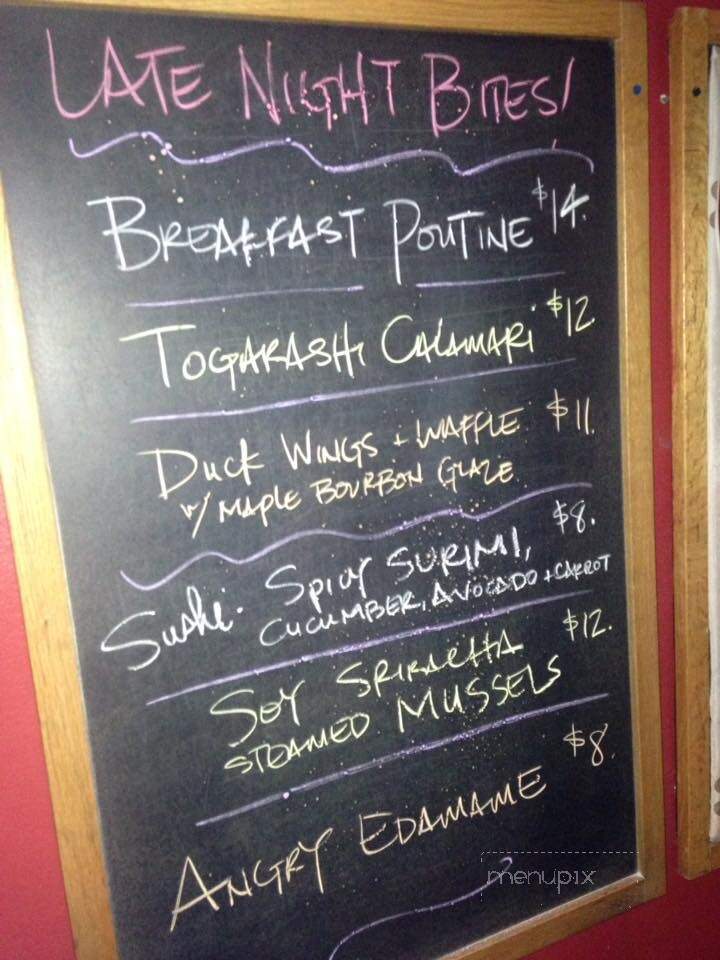 LATE NIGHT BITES!
BREAKFAST POUTINE $14.
TOGARASHI CALAMARI $12
DUCK WINGS + WAFFLE $11.
W/ MAPLE BOURBON GLAZE
Sushi. SPICY SURIMI, $8.
CUCUMBER, AVOCADO + CARROT
SOY SRIRACHA $12.
STEAMED MUSSELS
ANGRY EDAMAME $8.
menupix